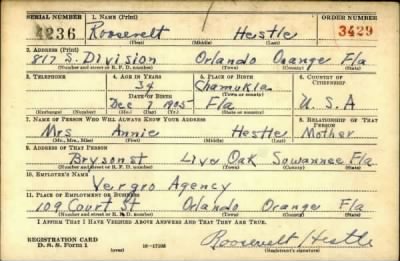 SERIAL NUMBER 1. NAME (Print) ORDER NUMBER
236 Roosevelt Hestle 3429
(First) (Middle) (Last)
2. ADDRESS (Print)
817 S. Division Orlando Orange Fla
(Number and street or R. F. D. number) (Town) (County) (State)
3. TELEPHONE 4. AGE IN YEARS 5. PLACE OF BIRTH 6. COUNTRY OF CITIZENSHIP
34 Chamukla
DATE OF BIRTH (Town or county)
Dec 7 1905 Fla U.S.A
(Exchange) (No.) (Mo.) (Day) (Yr.) (State or country)
7. NAME OF PERSON WHO WILL ALWAYS KNOW YOUR ADDRESS 8. RELATIONSHIP OF THAT PERSON
Mrs Annie Hestle Mother
(Mr., Mrs., Miss) (First) (Middle) (Last)
9. ADDRESS OF THAT PERSON
Bryson st Live Oak Sowannee Fla
(Number and street or R. F. D. number) (Town) (County) (State)
10. EMPLOYER'S NAME
Vergro Agency
11. PLACE OF EMPLOYMENT OR BUSINESS
109 Court St Orlando Orange Fla
(Number and street or R. F. D. number) (Town) (County) (State)
I AFFIRM THAT I HAVE VERIFIED ABOVE ANSWERS AND THAT THEY ARE TRUE.
REGISTRATION CARD
D. S. S. Form 1 (over) 16-17105 Roosevelt Hestle
(Registrant's signature)